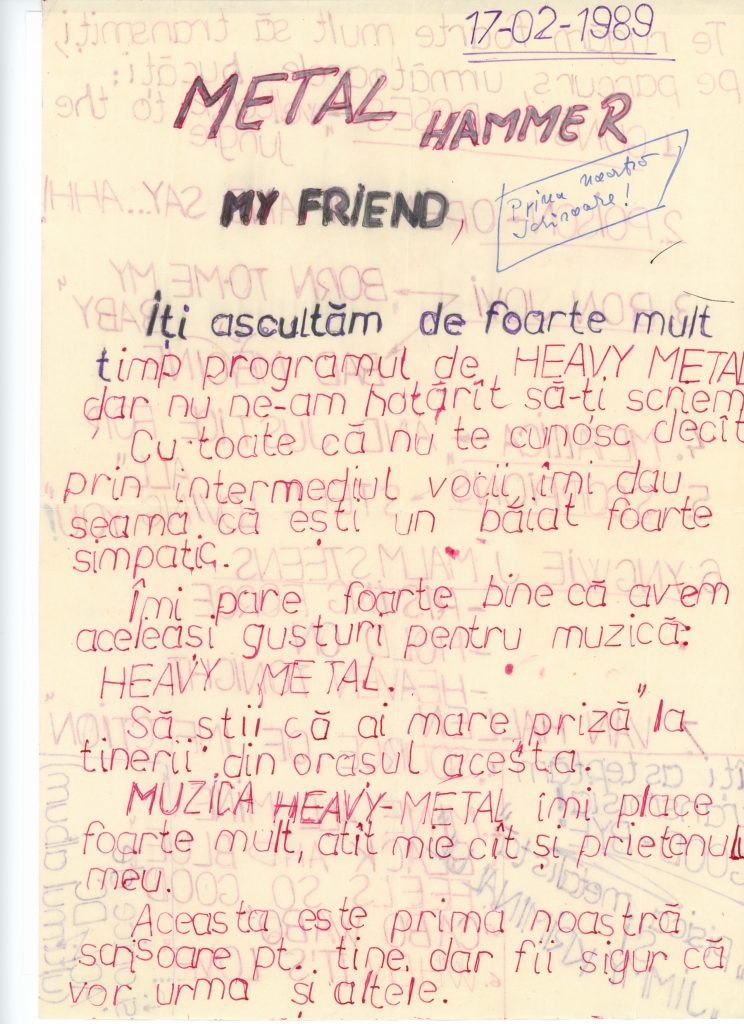 17-02-1989
METAL HAMMER
MY FRIEND,
Prima noastră
scrisoare!
Îți ascultăm de foarte mult
timp programul de HEAVY METAL
dar nu ne-am hotărît să-ți scriem.
Cu toate că nu te cunosc decît
prin intermediul vocii, îmi dau
seama că ești un băiat foarte
simpatic.
Îmi pare foarte bine că avem
aceleași gusturi pentru muzică:
HEAVY METAL.
Să știi că ai mare „priză” la
tinerii din orașul acesta.
MUZICA HEAVY-METAL îmi place
foarte mult, atît mie cît și prietenului
meu.
Aceasta este prima noastră
scrisoare pt. tine, dar fii sigur că
vor urma și altele.